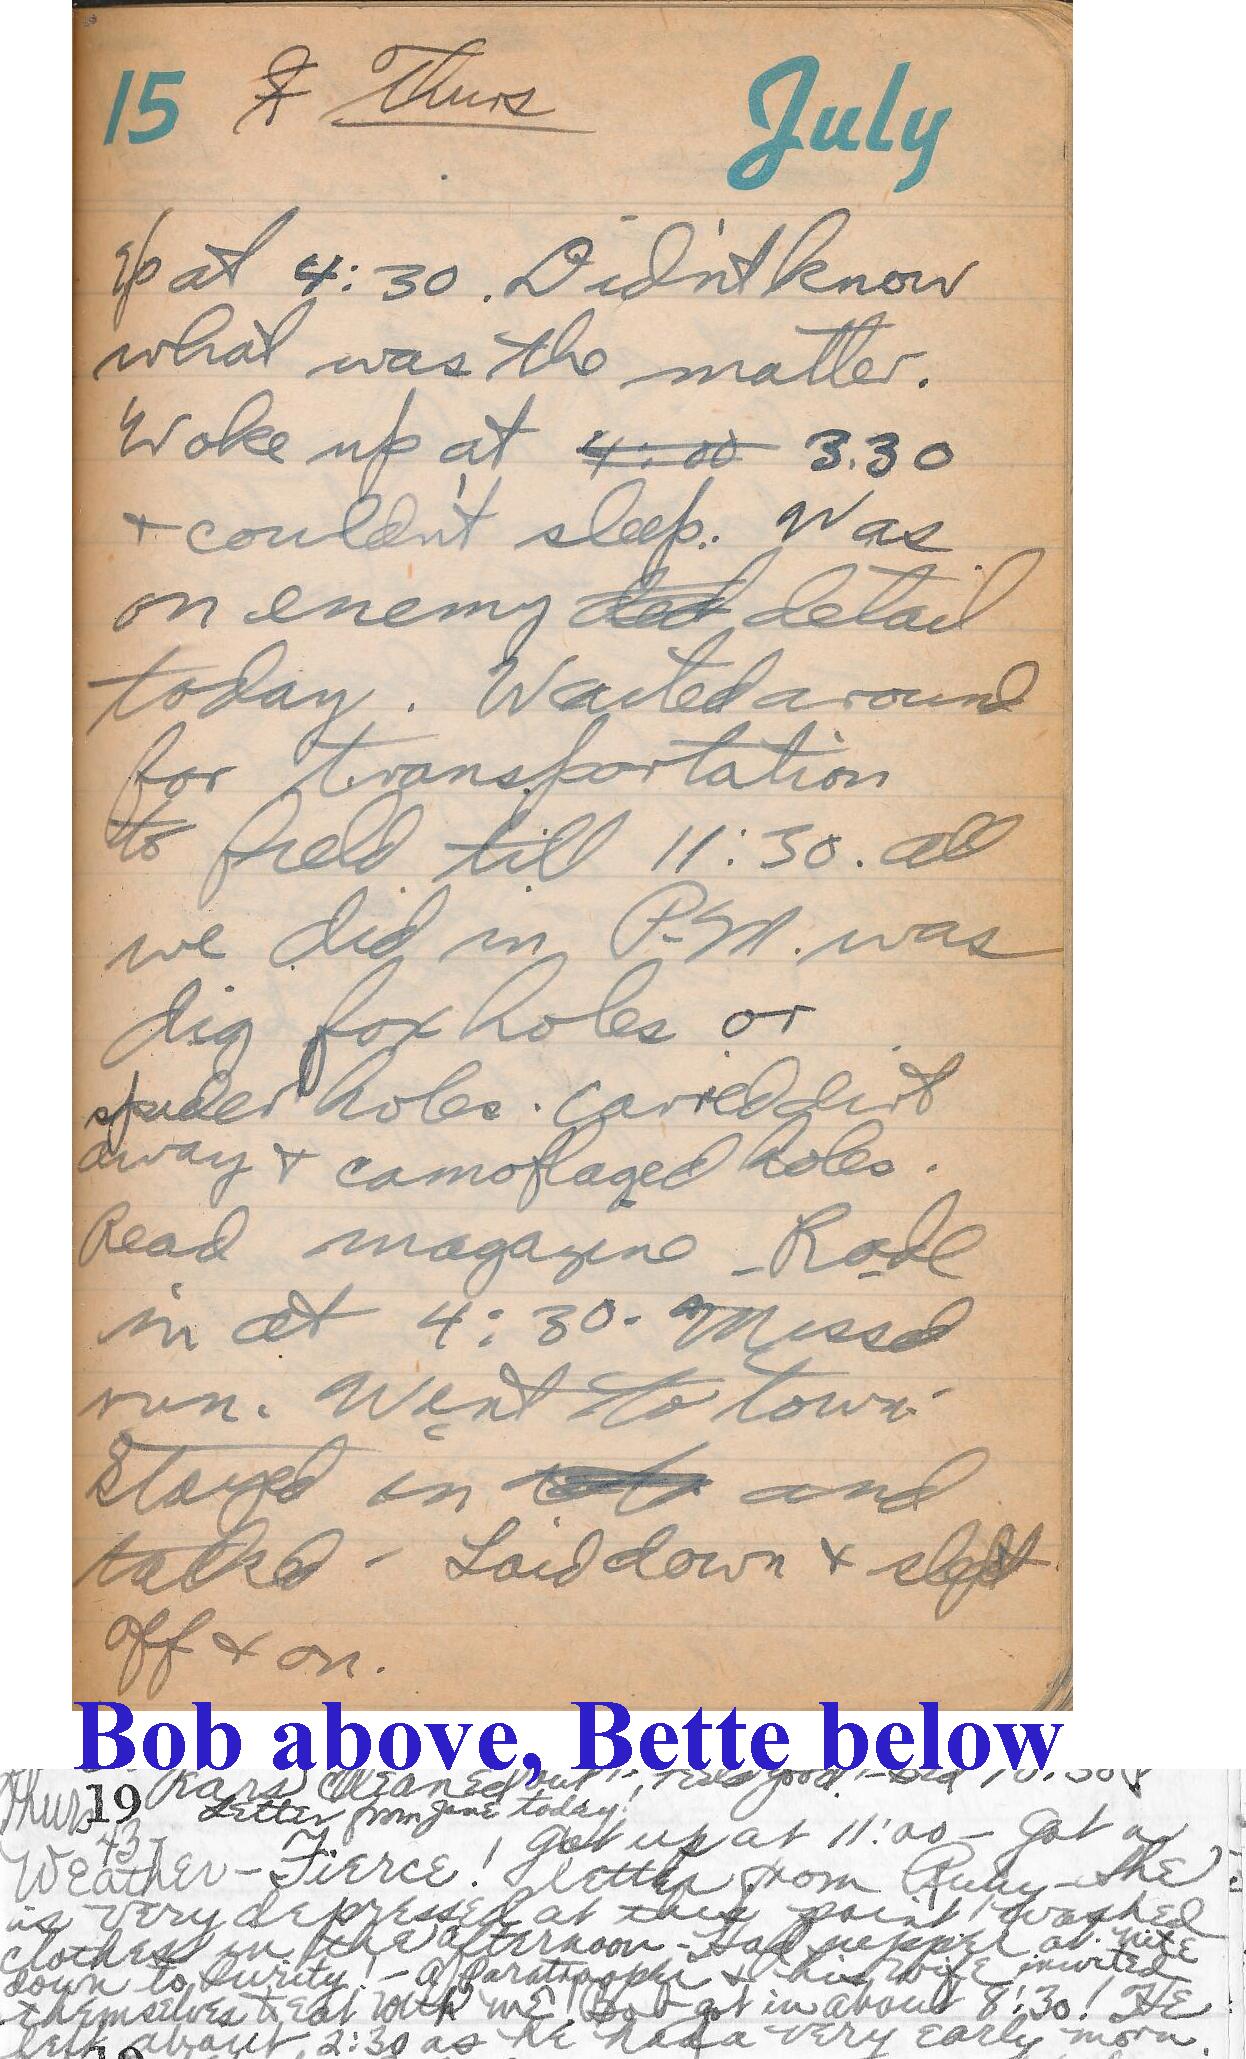 15 Thurs July
Up at 4:30. Didn't know
what was the matter.
Woke up at 4:00 3.30
+ couldn't sleep. Was
on enemy ded detail
today. Waited around
for transportation
to field till 11:30. all
we did in P.M. was
dig fox holes or
spider holes. Carried dirt
away + camoflaged holes.
Read magazine - Rode
in at 4:30. Missed
run. Went to town.
Stayed in and
talked - Laid down + slept
off + on.
Bob above, Bette below
cleaned out! Feels good! - Bed 10:30
Thurs 19 Letter from Jane today!
43 Got up at 11:00 - Got a
Weather - Fierce! letter from Ruby - She
is very depressed at this point! Washed
clothes in the afternoon - Had supper at nite
down to Purity! - A Paratrooper + his wife invited
themselves to eat with me! Bob got in about 8:30! He
left about 2:30 as he had a very early morn.
19